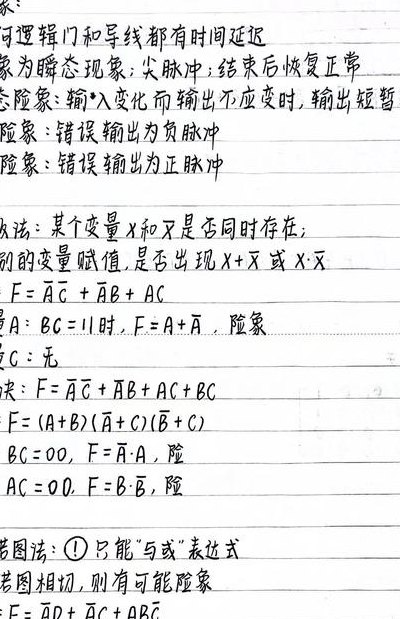 象:
何逻辑门和导线都有时间延迟
象为瞬态现象;尖脉冲;结束后恢复正常
态险象:输入变化而输出不应变时,输出短暂
险象:错误输出为负脉冲
险象:错误输出为正脉冲
法:某个变量X和X̅是否同时存在;
别的变量赋值,是否出现X+X̅或X·X̅
F=A̅C̅+A̅B+AC
A:BC=11时,F=A+A̅,险象
C:无
决:F=A̅C̅+A̅B+AC+BC
F=(A+B)(A̅+C)(B̅+C)
BC=00, F=A̅·A,险
AC=00, F=B·B̅,险
诺图法:①只能"与或"表达式
诺图相切,则有可能险象
F=A̅D+A̅C+ABC̅